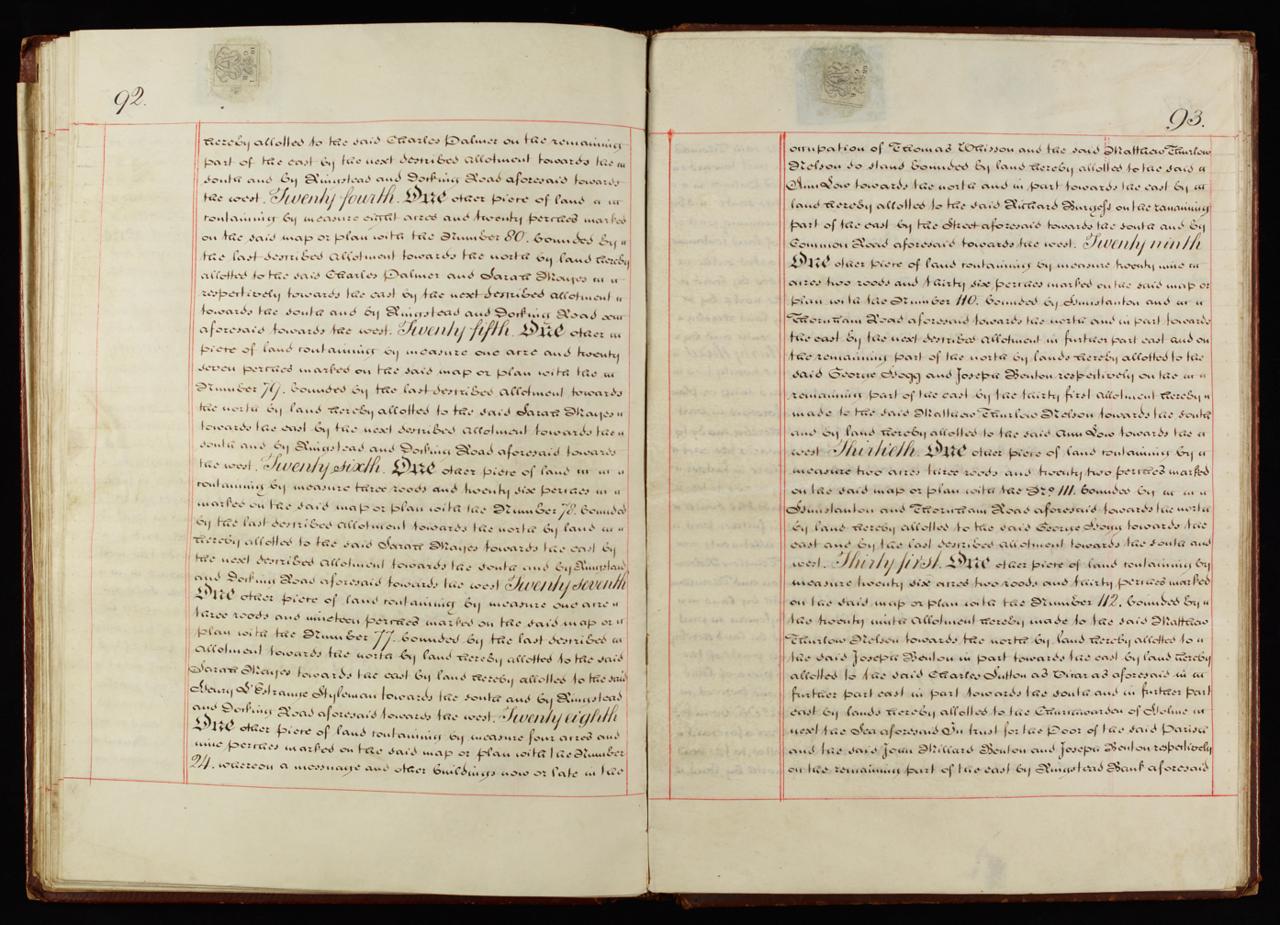 92.
hereby allotted to the said Charles Palmer on the remaining
part of the east by the next described allotment towards the
south and by Ringstead and Docking Road aforesaid towards
the west. Twenty fourth. One other piece of land
containing by measure eight acres and twenty perches marked
on the said map or plan with the Number 80. bounded by
the last described allotment towards the north by land hereby
allotted to the said Charles Palmer and Sarah Mayes
respectively towards the east by the next described allotment
towards the south and by Ringstead and Docking Road
aforesaid towards the west. Twenty fifth. One other
piece of land containing by measure one acre and twenty
seven perches marked on the said map or plan with the
Number 79. bounded by the last described allotment towards
the north by land hereby allotted to the said Sarah Mayes
towards the east by the next described allotment towards the
south and by Ringstead and Docking Road aforesaid towards
the west. Twenty sixth. One other piece of land
containing by measure three roods and twenty six perches
marked on the said map or plan with the Number 78. bounded
by the last described allotment towards the north by land
hereby allotted to the said Sarah Mayes towards the east by
the next described allotment towards the south and by Ringstead
and Docking Road aforesaid towards the west Twenty seventh
One other piece of land containing by measure one acre
three roods and nineteen perches marked on the said map or
plan with the Number 77. bounded by the last described
allotment towards the north by land hereby allotted to the said
Sarah Mayes towards the east by land hereby allotted to the said
Henry L'Estrange Styleman towards the south and by Ringstead
and Docking Road aforesaid towards the west. Twenty eighth
One other piece of land containing by measure four acres and
nine perches marked on the said map or plan with the Number
24. whereon a messuage and other buildings now or late in the
93.
occupation of Thomas Whisson and the said Matthew Thurlow
Nelson do stand bounded by land hereby allotted to the said
Ann Low towards the north and in part towards the east by
land hereby allotted to the said Richard Burgess on the remaining
part of the east by the Street aforesaid towards the south and by
Common Road aforesaid towards the west. Twenty ninth
One other piece of land containing by measure twenty nine
acres two roods and thirty six perches marked on the said map or
plan with the Number 110. bounded by Hunstanton and
Thornham Road aforesaid towards the north and in part towards
the east by the next described allotment in further part east and on
the remaining part of the north by lands hereby allotted to the
said George Hogg and Joseph Benton respectively on the
remaining part of the east by the thirty first allotment hereby
made to the said Matthew Thurlow Nelson towards the south
and by land hereby allotted to the said Ann Low towards the
west Thirtieth. One other piece of land containing by
measure two acres three roods and twenty two perches marked
on the said map or plan with the No. 111. bounded by
Hunstanton and Thornham Road aforesaid towards the north
by land hereby allotted to the said George Hogg towards the
east and by the last described allotment towards the south and
west. Thirty first. One other piece of land containing by
measure twenty six acres two roods and thirty perches marked
on the said map or plan with the Number 112. bounded by
the twenty ninth Allotment hereby made to the said Matthew
Thurlow Nelson towards the north by land hereby allotted to
the said Joseph Benton in part towards the east by land hereby
allotted to the said Charles Sutton as Vicar as aforesaid in
further part east in part towards the south and in further part
east by lands hereby allotted to the Churchwarden of Holme
next the Sea aforesaid In trust for the Poor of the said Parish
and the said John Millard Benton and Joseph Benton respectively
on the remaining part of the east by Ringstead Bank aforesaid